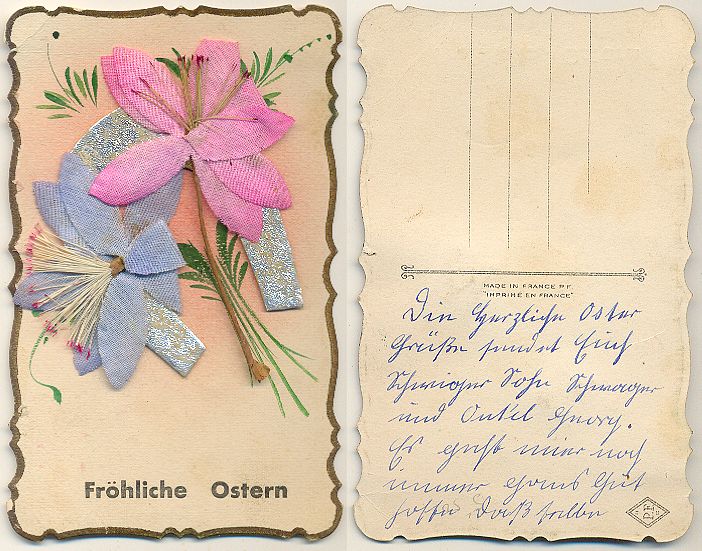 Fröhliche Ostern
MADE IN FRANCE P.F.
"IMPRIMÉ EN FRANCE"
Die Herzliche Oster
Grüße sendet Euch
Schwiger Sohn Schwager
und Onkel Georg.
Es geht mier noch
immer gans Gut
hoffen daß selbe